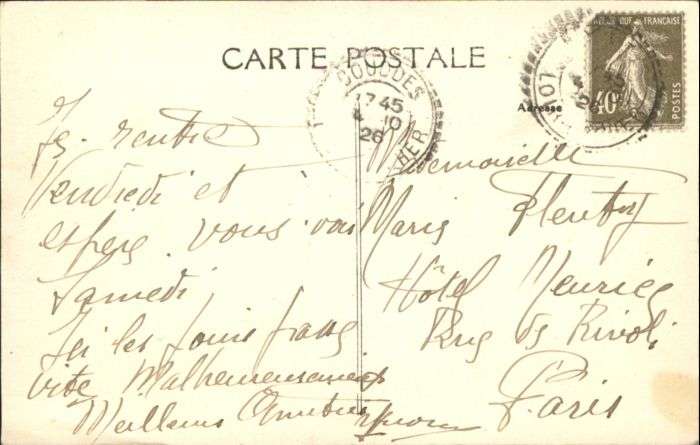 CARTE POSTALE
RÉPUBLIQUE FRANÇAISE
40c
POSTES
Adresse
1745
4 10
26
CHER
Je rentre
Vendredi et
espère vous voir
Samedi
Ici les jours passent
vite Malheureusement
Meilleurs
Mademoiselle
Marie
Hôtel Meurice
Rue de Rivoli
Paris